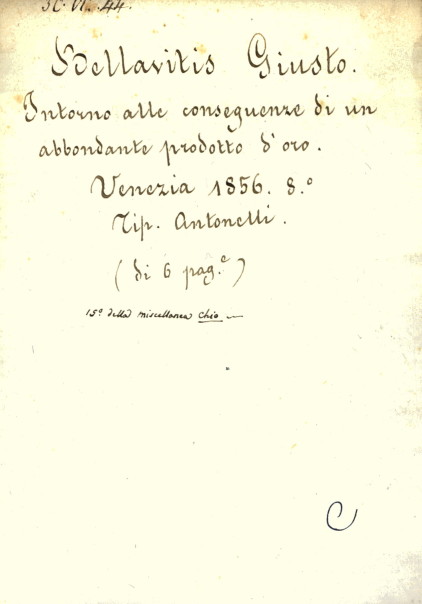 VI. 44.
Bellavitis Giusto.
Intorno alle conseguenze di un
abbondante prodotto d'oro.
Venezia 1856. 8.º
Tip. Antonelli.
(di 6 pag.e)
15º della miscellanea Chio
C